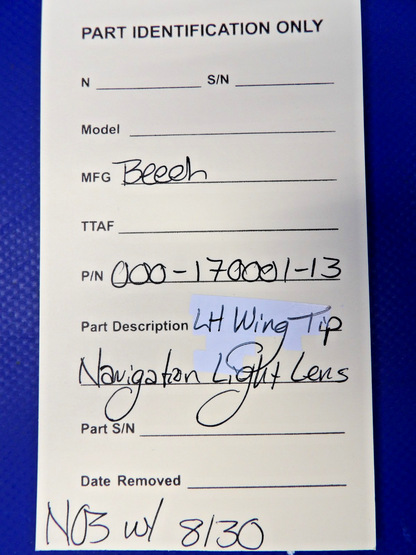 PART IDENTIFICATION ONLY
N S/N
Model
MFG Beech
TTAF
P/N 000-170001-13
Part Description LH Wing Tip
Navigation Light Lens
Part S/N
Date Removed
N03 w/ 8/30